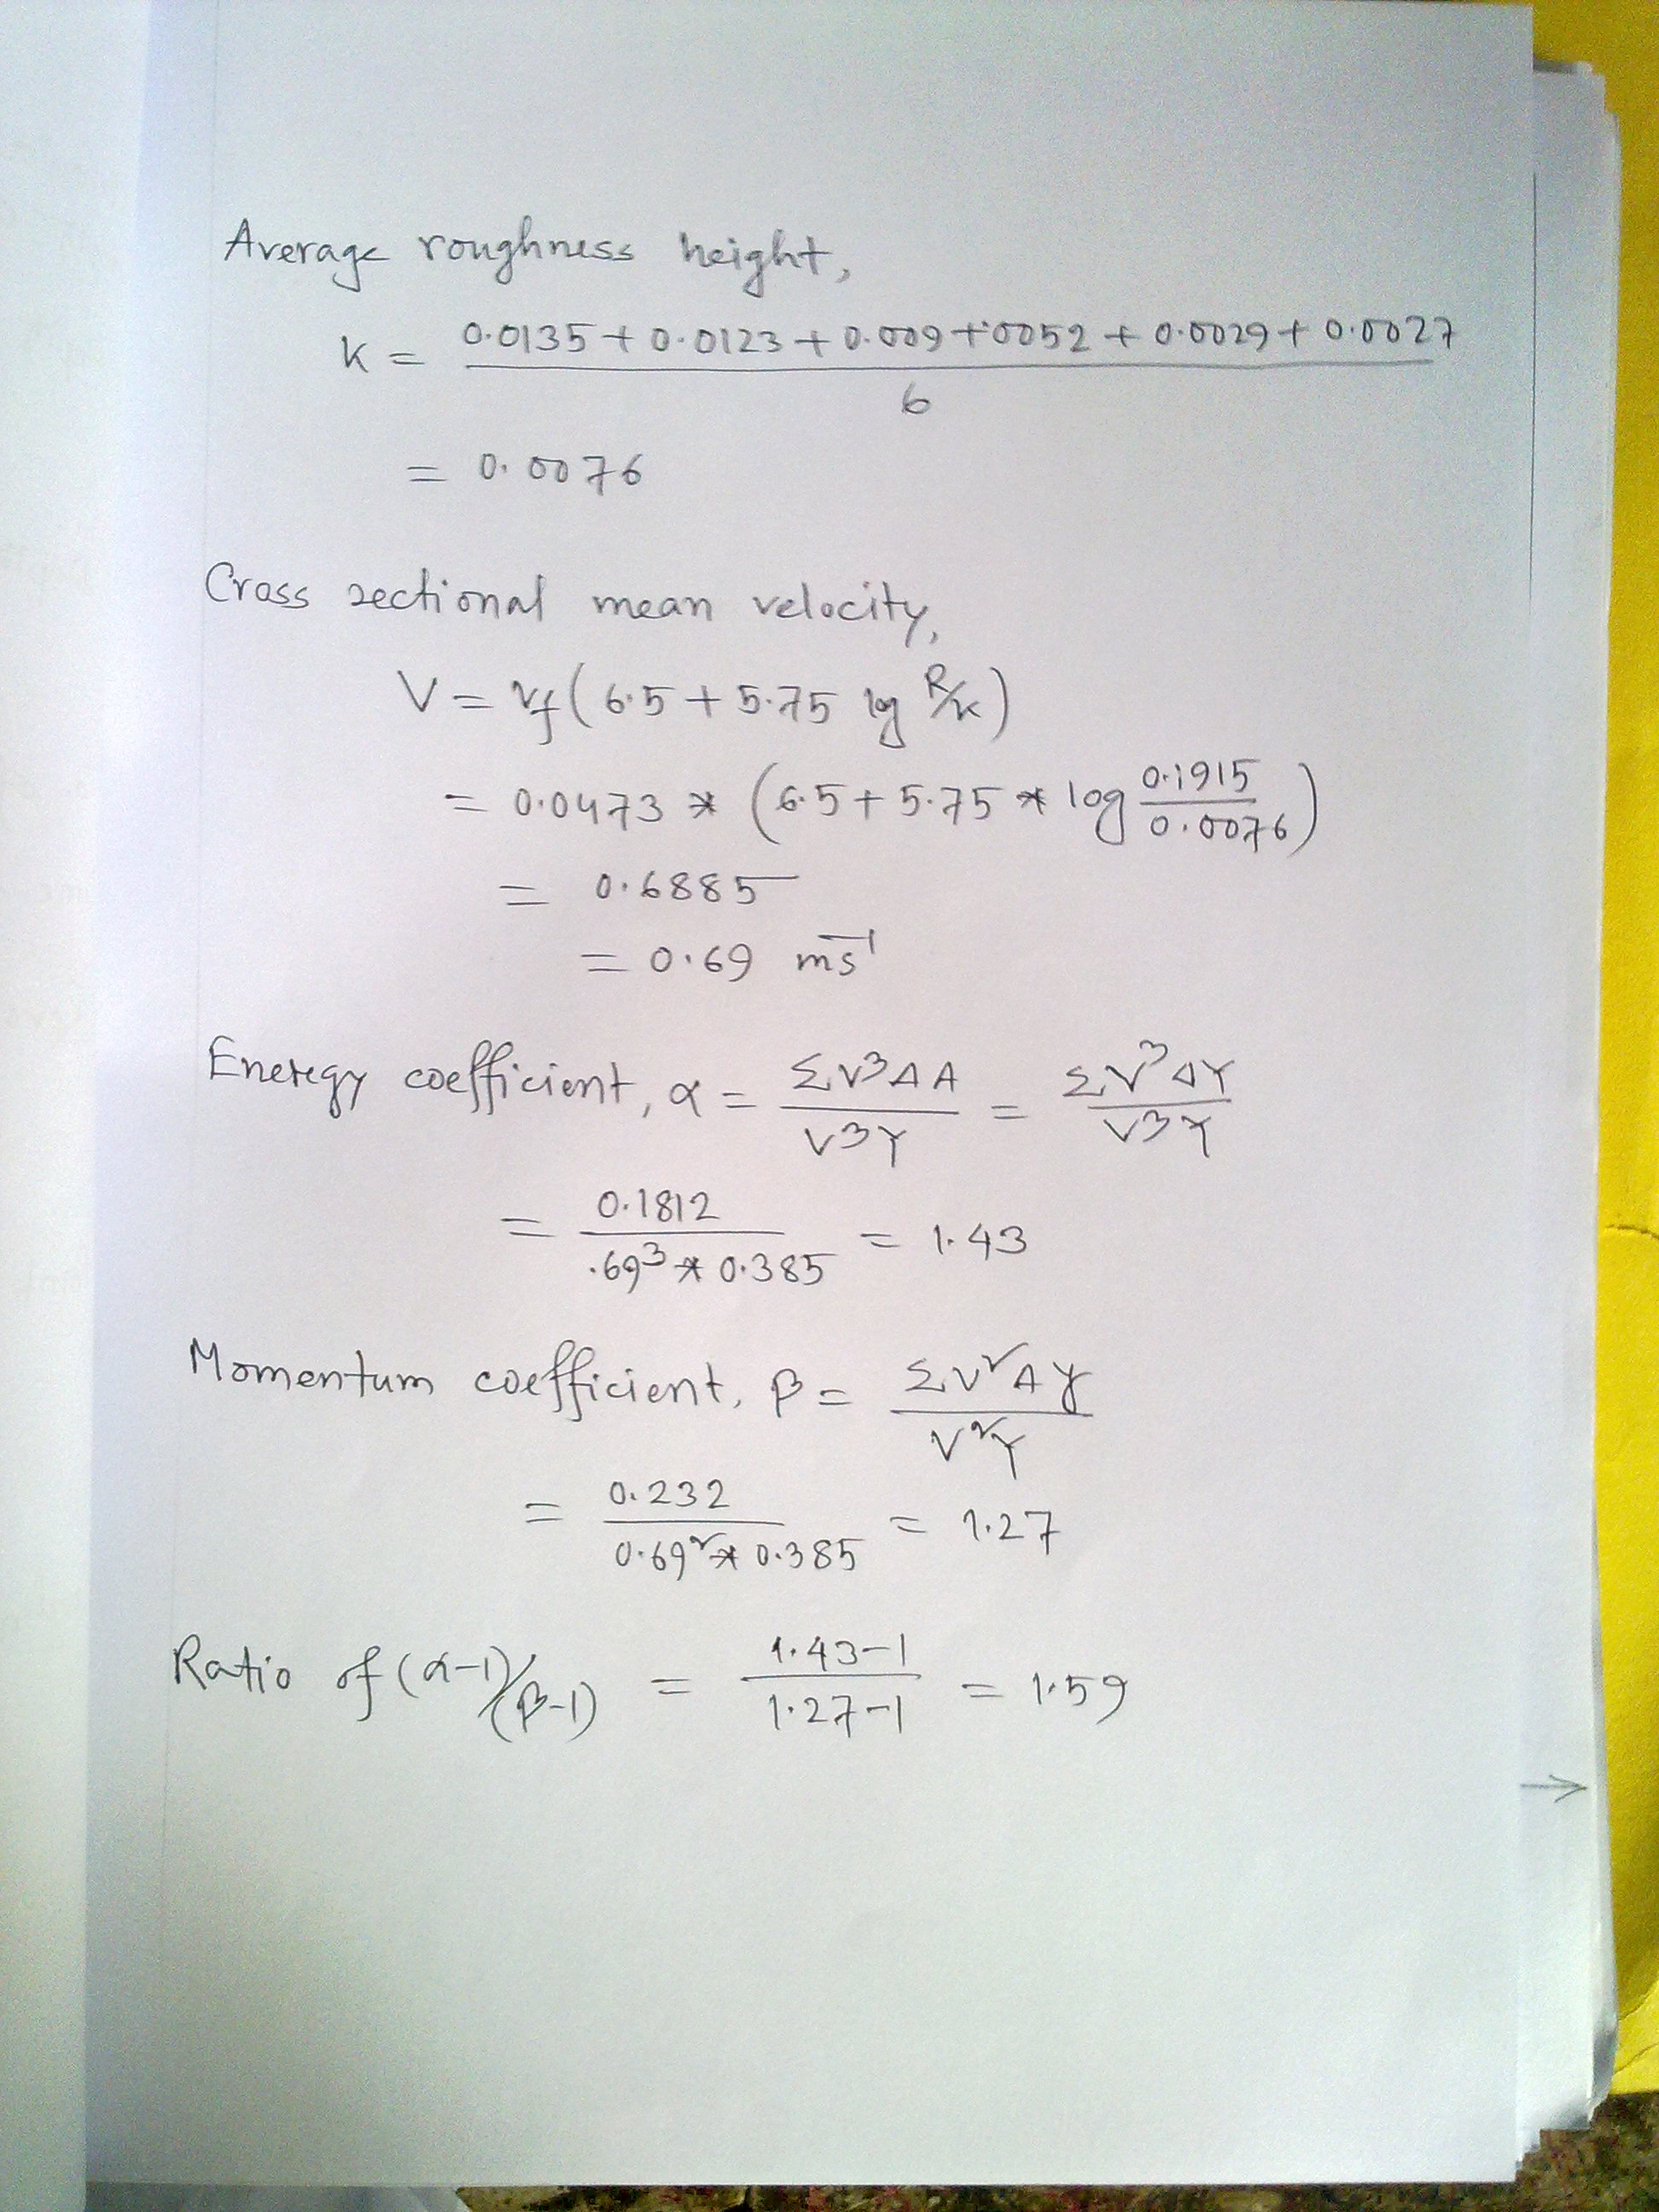 Average roughness height,
K = (0.0135 + 0.0123 + 0.009 + .0052 + 0.0029 + 0.0027) / 6
= 0.0076
Cross sectional mean velocity,
V = vf (6.5 + 5.75 log R/K)
= 0.0473 * (6.5 + 5.75 * log 0.1915 / 0.0076)
= 0.6885
= 0.69 ms⁻¹
Enetegy coefficient, α = ΣV³ΔA / V³Y = ΣV³ΔY / V³Y
= 0.1812 / .69³ * 0.385 = 1.43
Momentum coefficient, β = ΣV²ΔY / V²Y
= 0.232 / 0.69² * 0.385 = 1.27
Ratio of (α-1)/(β-1) = 1.43-1 / 1.27-1 = 1.59
→